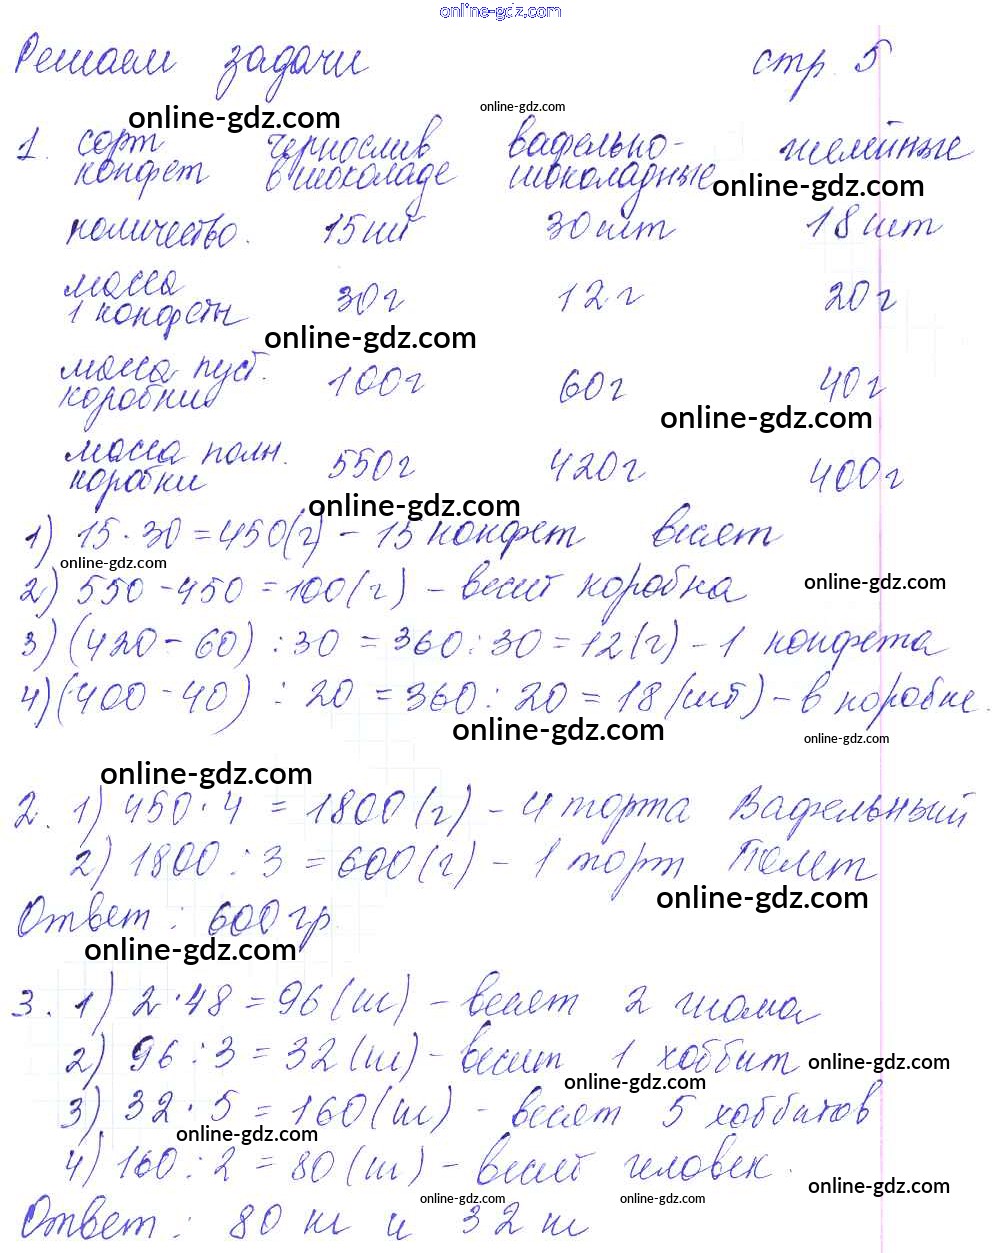 online-gdz.com
Решаем задачи стр. 5
online-gdz.com online-gdz.com
1. сорт конфет чернослив в шоколаде вафельно-шоколадные желейные
online-gdz.com
количество. 15 шт 30 шт 18 шт
масса 1 конфеты 30 г 12 г 20 г
online-gdz.com
масса пуст. коробки 100 г 60 г 40 г
online-gdz.com
масса полн. коробки 550 г 420 г 400 г
online-gdz.com
1) 15 · 30 = 450 (г) - 15 конфет весят
online-gdz.com online-gdz.com
2) 550 - 450 = 100 (г) - весит коробка
3) (420 - 60) : 30 = 360 : 30 = 12 (г) - 1 конфета
4) (400 - 40) : 20 = 360 : 20 = 18 (шт) - в коробке.
online-gdz.com online-gdz.com
online-gdz.com
2. 1) 450 · 4 = 1800 (г) - 4 торта Вафельный
2) 1800 : 3 = 600 (г) - 1 торт Полет
online-gdz.com
Ответ: 600 гр.
online-gdz.com
3. 1) 2 · 48 = 96 (ш) - весят 2 гнома
2) 96 : 3 = 32 (ш) - весит 1 хоббит
online-gdz.com online-gdz.com
3) 32 · 5 = 160 (ш) - весят 5 хоббитов
online-gdz.com
4) 160 : 2 = 80 (ш) - весит человек.
online-gdz.com online-gdz.com online-gdz.com
Ответ: 80 ш и 32 ш